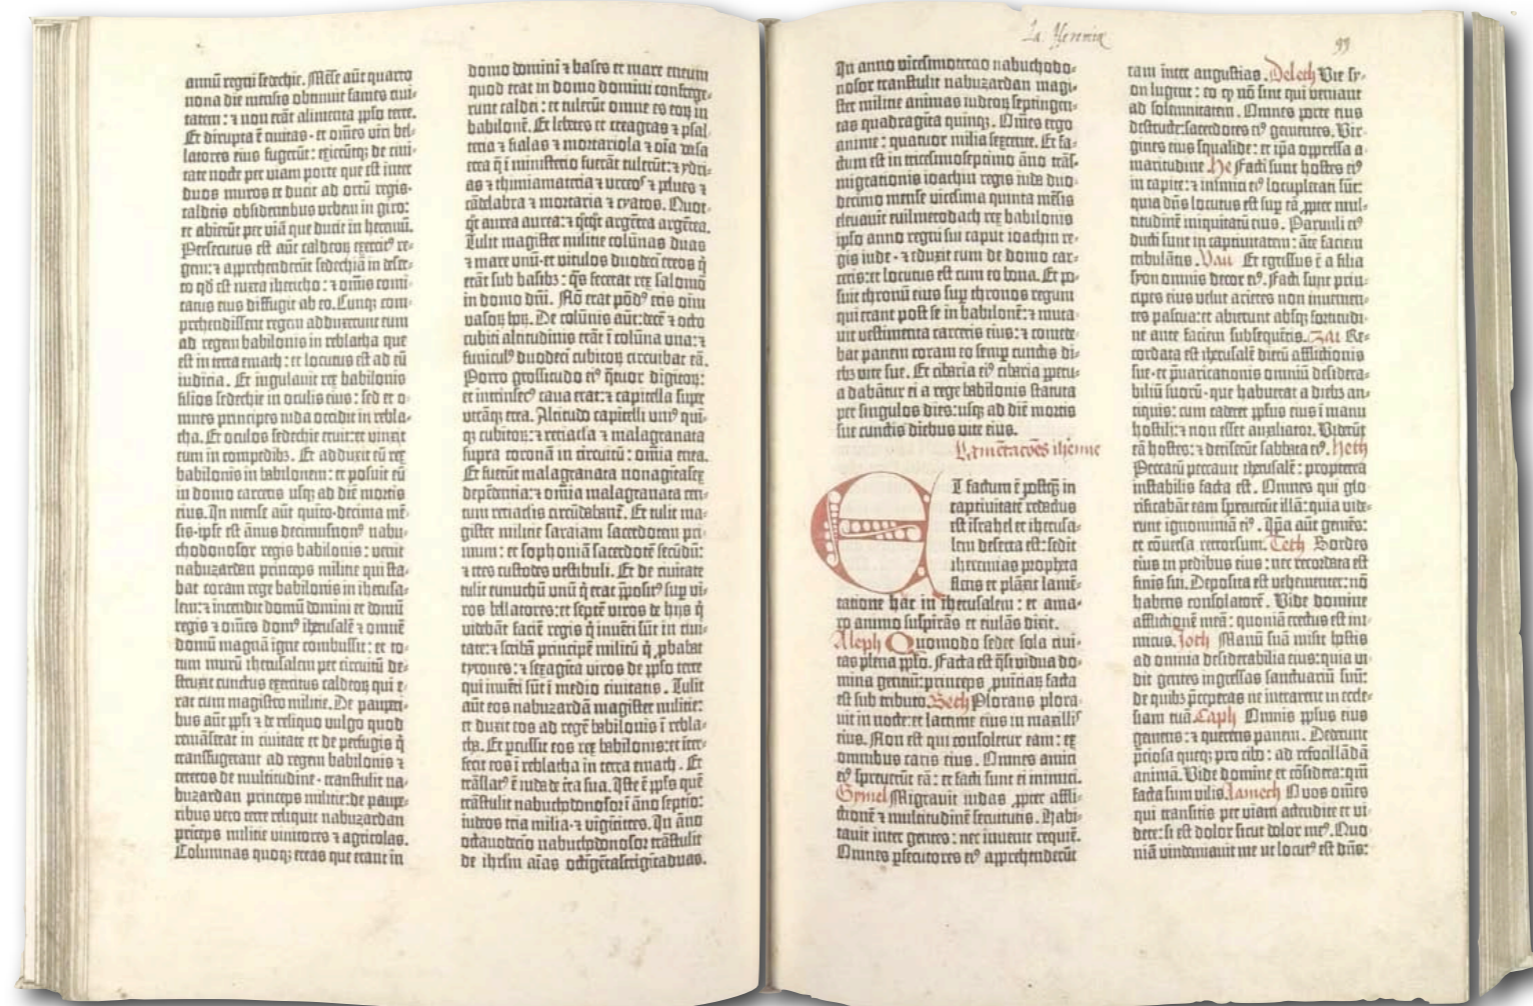 annū regni sedechie. Mēse aūt quarto
nona die mensis obtinuit fames ciui-
tatem: ⁊ non erāt alimenta pplo terre.
Et dirupta ē ciuitas · et om̄es viri bel-
latores eius fugerūt: exierūtqꝫ de ciui-
tate nocte per viam porte que est inter
duos muros et ducit ad ortū regis·
caldeis obsidentibus vrbem in giro:
et abierūt per viā que ducit in heremū.
Persecutus est aūt caldeoꝝ exercit⁹ re-
gem: ⁊ apprehenderūt sedechiā in deser-
to qd̄ est iuxta ihericho: ⁊ omīs comi-
tatus eius diffugit ab eo. Cunqꝫ com-
prehendissent regem adduxerunt eum
ad regem babilonis in reblatha que
est in terra emath: et locutus est ad eū
iudicia. Et iugulauit rex babilonis
filios sedechie in oculis eius: sed et o-
mnes principes iuda occidit in rebla-
tha. Et oculos sedechie eruit: et vinxit
eum in compedibꝫ. Et adduxit eū rex
babilonis in babilonem: et posuit eū
in domo carceris usqꝫ ad diē mortis
eius. In mense aūt quīto·decima mē-
sis·ipse est ānus decimusnon⁹ nabu-
chodonosor regis babilonis: venit
nabuzardan princeps militie qui sta-
bat coram rege babilonis in iherusa-
lem: ⁊ incendit domū domini et domū
regis ⁊ om̄es dom⁹ iherusalē ⁊ omnē
domū magnā igne combussit: et to-
tum murū iherusalem per circuitū de-
struxit cunctus exercitus caldeoꝝ qui e-
rat cum magistro militie. De pauperi-
bus aūt ppli ⁊ de reliquo vulgo quod
remāserat in ciuitate et de perfugis q̄
transfugerant ad regem babilonis ⁊
ceteros de multitudine · transtulit na-
buzardan princeps militie: de paupe-
ribus vero terre reliquit nabuzardan
prīceps militie vinitores ⁊ agricolas.
Columnas quoqꝫ ereas que erant in
domo domini ⁊ bases et mare eneum
quod erat in domo domini confrege-
runt caldei: et tulerūt omne es eoꝝ in
babilonē. Et lebetes et creagras ⁊ psal-
teria ⁊ fialas ⁊ mortariola ⁊ oīa vasa
erea q̄ ī ministerio fuerāt tulerūt: ⁊ ydri-
as ⁊ thimiamateria ⁊ vrceos ⁊ pelues ⁊
cādelabra ⁊ mortaria ⁊ cyatos. Quot-
qt̄ aurea aurea: ⁊ qt̄qt̄ argētea argētea.
Tulit magister militie colūnas duas
⁊ mare unū·et vitulos duodeci ereos q̄
erāt sub basibꝫ: qs̄ fecerat rex salomō
in domo dn̄i. Nō erat pōd⁹ eris oīm
vasoꝝ hoꝝ. De colūnis aūt: decē ⁊ octo
cubiti altitudinis erāt ī colūna una: ⁊
funicul⁹ duodeci cubitoꝝ circuibat eā.
Porro grossitudo ei⁹ q̄tuor digitoꝝ:
et intrinsec⁹ caua erat: ⁊ capitella supͬ
utrāqꝫ erea. Altitudo capitelli uni⁹ quī-
qꝫ cubitoꝝ: ⁊ reciacla ⁊ malagranata
supra coronā in circuitu: omīa enea.
Et fuerūt malagranata nonagītasex
depēdentia: ⁊ omīa malagranata cen-
tum reciaclis circūdabant̄. Et tulit ma-
gister militie saraiam sacerdotem pri-
mum: et sophoniā sacerdotē secūdū:
⁊ tres custodes vestibuli. Et de ciuitate
tulit eunuchū unū q̄ erat p̄posit⁹ sup̄ vi-
ros bellatores: et septē viros de hijs q̄
videbāt faciē regis q̄ inuēti sūt in ciui-
tate: ⁊ scribā principē militū q̄ ꝓbabat
tyrones: ⁊ sexagīta viros de pplo terre
qui inuēti sūt ī medio ciuitatis. Tulit
aūt eos nabuzardā magister militie:
et duxit eos ad regē babilonis ī rebla-
tha. Et ꝑcussit eos rex babilonis: et īter-
fecit eos ī reblatha in terra emath. Et
trāslat⁹ ē iuda de tr̄a sua. Iste ē ppls quē
trāstulit nabuchodonosor ī āno septīo:
iudeos tria milia ⁊ vigītitres. In āno
octauodecīo nabuchodonosor trāstulit
de ihrlm aīas octīgētastrigītaduas.
La. Ieremiæ
99
In anno vicesimotercio nabuchodo-
nosor transtulit nabuzardan magi-
ster militie animas iudeoꝝ septingen-
tas quadragīta quinqꝫ. Om̄es ergo
anime: quatuor milia sexcente. Et fa-
ctum est in tricesimoseptimo āno trās-
migrationis ioachin regis iuda duo-
decimo mense vicesima quinta mēsis
eleuauit euilmerodach rex babilonis
ipso anno regni sui caput ioachin re-
gis iude · ⁊ eduxit eum de domo car-
ceris: et locutus est cum eo bona. Et po-
suit thronū eius sup̄ thronos regum
qui erant post se in babilonē: ⁊ muta-
uit vestimenta carceris eius: ⁊ comede-
bat panem coram eo semp̄ cunctis di-
ebꝫ vite sue. Et cibaria ei⁹ cibaria ꝑpetu-
a dabātur ei a rege babilonis statuta
per singulos dies: usqꝫ ad diē mortis
sue cunctis diebus vite eius.
Lamētacōes iheremie
Et factum ē postqꝫ in
captiuitatē redactus
est israhel et iherusa-
lem deserta est: sedit
iheremias propheta
flens et plāxit lamē-
tatione hac in iherusalem: et ama-
ro animo suspirās et eiulās dixit.
Aleph Quomodo sedet sola ciui-
tas plena pplo. Facta est q̄si vidua do-
mina gentiū: princeps ꝓuīciaꝝ facta
est sub tributo. Beth Plorans plora-
uit in nocte: et lacrime eius in maxillis
eius. Non est qui consoletur eam: ex
omnibus caris eius. Omnes amici
ei⁹ spreuerūt eā: et facti sunt ei inimici.
Gymel Migrauit iudas ꝓpter affli-
ctionē ⁊ multitudinē seruitutis. Habi-
tauit inter gentes: nec inuenit requiē.
Omnes ꝑsecutores ei⁹ apprehenderūt
eam inter angustias. Deleth Vie sy-
on lugent: eo ꝙ nō sint qui veniant
ad solennitatem. Omnes porte eius
destructe: sacerdotes ei⁹ gementes. Vir-
gines eius squalide: et ip̄a oppressa a-
maritudine. He Facti sunt hostes ei⁹
in capite: ⁊ inimici ei⁹ locupletati sūt:
quia dn̄s locutus est sup̄ eā ꝓpter mul-
titudinē iniquitatū eius. Paruuli ei⁹
ducti sunt in captiuitatem: āte faciem
tribulātis. Vau Et egressus ē a filia
syon omnis decor ei⁹. Facti sunt prin-
cipes eius velut arietes non inuenien-
tes pascua: et abierunt absqꝫ fortitudi-
ne ante faciem subsequētis. Zai Re-
cordata est iherusalē dierū afflictionis
sue·et p̄uaricationis omniū desidera-
biliū suorū· que habuerat a diebꝫ an-
tiquis: cum caderet ppl̄us eius ī manu
hostili: ⁊ non esset auxiliator. Viderūt
eā hostes: ⁊ deriserūt sabbata ei⁹. Heth
Peccatū peccauit iherusalē: propterea
instabilis facta est. Omnes qui glo-
rificabāt eam spreuerūt illā: quia vide-
runt ignominiā ei⁹. Ip̄a aūt gemēs:
et cōuersa retrorsum. Teth Sordes
eius in pedibus eius: nec recordata est
finis sui. Deposita est vehementer: nō
habens consolatorē. Vide domine
afflictionē meā: quoniā erectus est ini-
micus. Ioth Manū suā misit hostis
ad omnia desiderabilia eius: quia vi-
dit gentes ingressas sanctuariū suū:
de quibꝫ p̄ceperas ne intrarent in eccle-
siam tuā. Caph Omnis ppl̄us eius
gemens: ⁊ querens panem. Dederunt
p̄ciosa queqꝫ pro cibo: ad refocillādā
animā. Vide domine et cōsidera: qm̄
facta sum vilis. Lamech O vos om̄es
qui transitis per viam attendite et vi-
dete: si est dolor sicut dolor me⁹. Quo-
niā vindemiauit me ut locut⁹ est dn̄s: